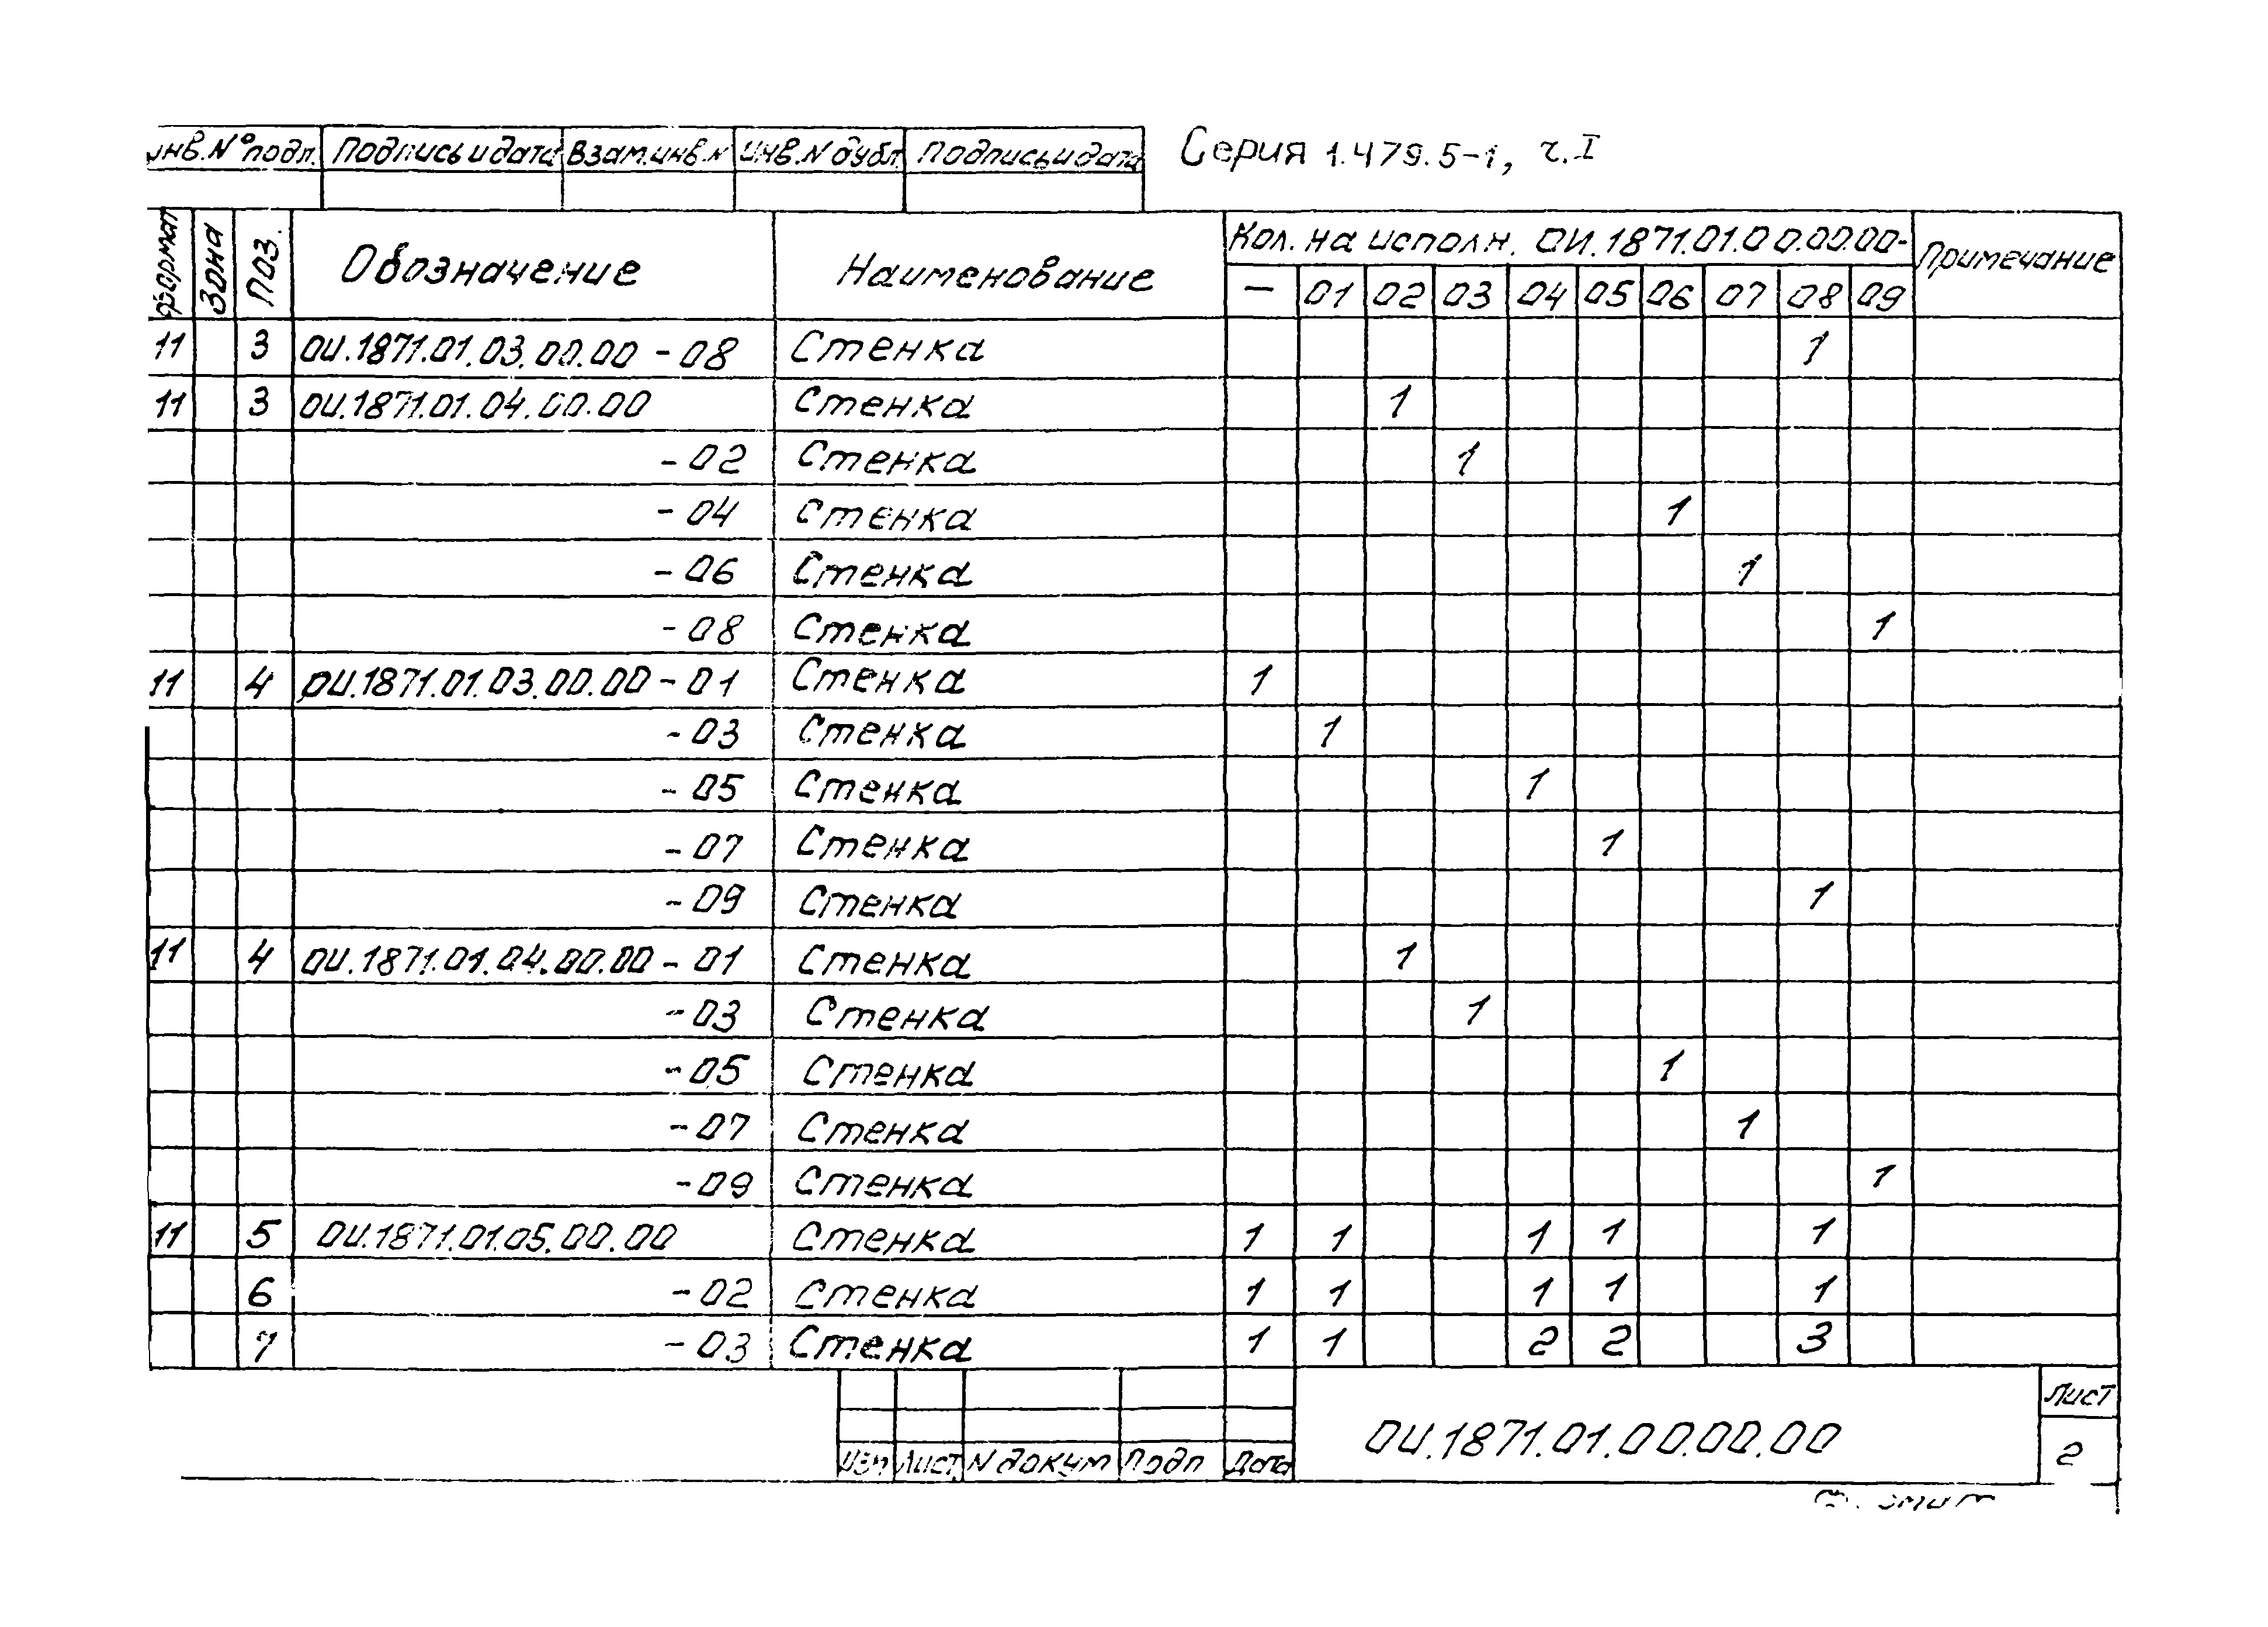 Инв.№ подл. Подпись и дата Взам.инв.N Инв.N дубл. Подпись и дата Серия 1.479.5-1, ч.I
Формат Зона Поз. Обозначение Наименование Кол. на исполн. ОИ.1871.01.00.00.00- Примечание
— 01 02 03 04 05 06 07 08 09
11 3 ОИ.1871.01.03.00.00 - 08 Стенка 1
11 3 ОИ.1871.01.04.00.00 Стенка 1
- 02 Стенка 1
- 04 Стенка 1
- 06 Стенка 1
- 08 Стенка 1
11 4 ОИ.1871.01.03.00.00 - 01 Стенка 1
- 03 Стенка 1
- 05 Стенка 1
- 07 Стенка 1
- 09 Стенка 1
11 4 ОИ.1871.01.04.00.00 - 01 Стенка 1
- 03 Стенка 1
- 05 Стенка 1
- 07 Стенка 1
- 09 Стенка 1
11 5 ОИ.1871.01.05.00.00 Стенка 1 1 1 1 1
6 - 02 Стенка 1 1 1 1 1
7 - 03 Стенка 1 1 2 2 3
Изм Лист N докум Подп Дата ОИ.1871.01.00.00.00 Лист
2